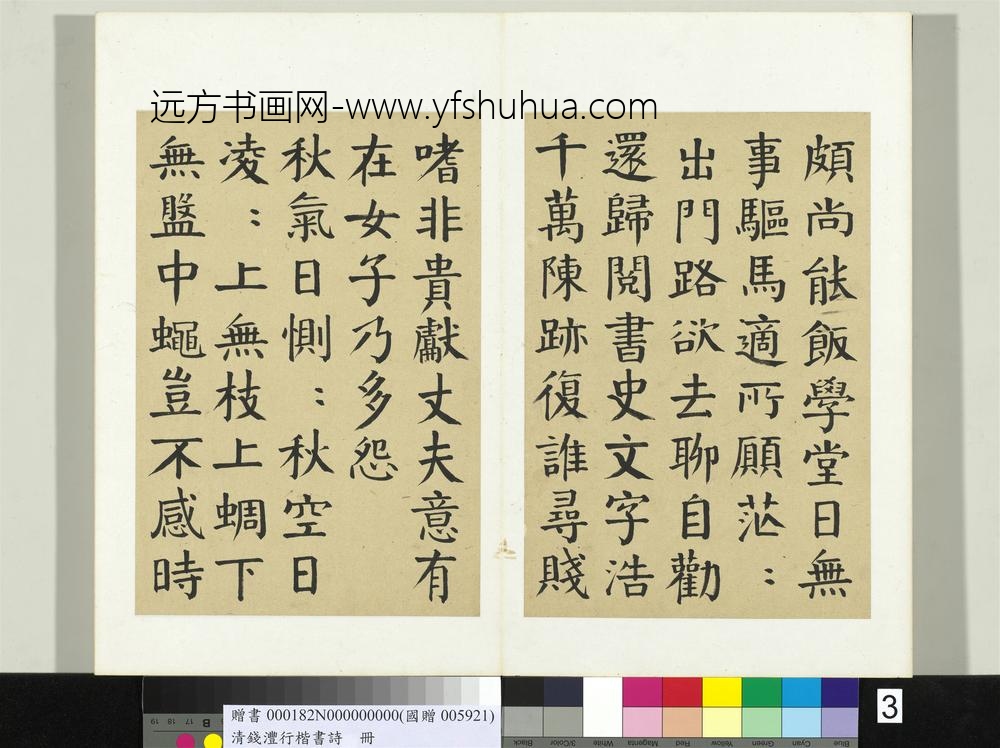 远方书画网-www.yfshuhua.com
頗尚能飯學堂日無
事驅馬適所願茫：
出門路欲去聊自勸
還歸閱書史文字浩
千萬陳跡復誰尋賤
嗜非貴獻丈夫意有
在女子乃多怨
秋氣日惻：秋空日
凌：上無枝上蜩下
無盤中蠅豈不感時
3
贈書 000182N000000000(國贈 005921)
清錢灃行楷書詩　冊
19 18 17 16 B
Black
3/Color
White
Magenta
Red
Yellow
Green
Cyan
Blue